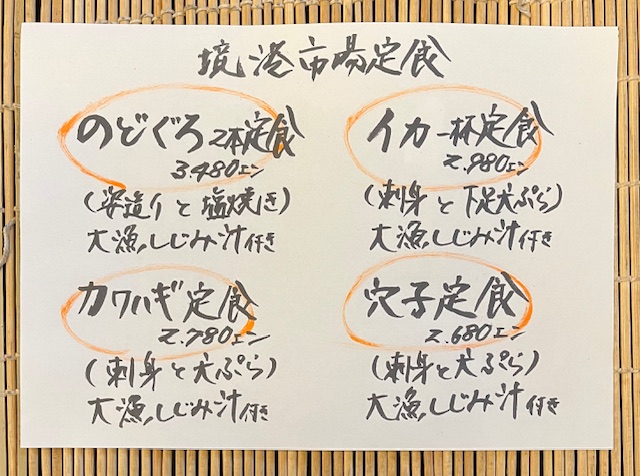 境港市場定食
のどぐろ2本定食
3.480エン
(姿造りと塩焼き)
大漁しじみ汁付き
イカ一杯定食
2.980エン
(刺身と下足天ぷら)
大漁しじみ汁付き
カワハギ定食
2.780エン
(刺身と天ぷら)
大漁しじみ汁付き
穴子定食
2.680エン
(刺身と天ぷら)
大漁しじみ汁付き